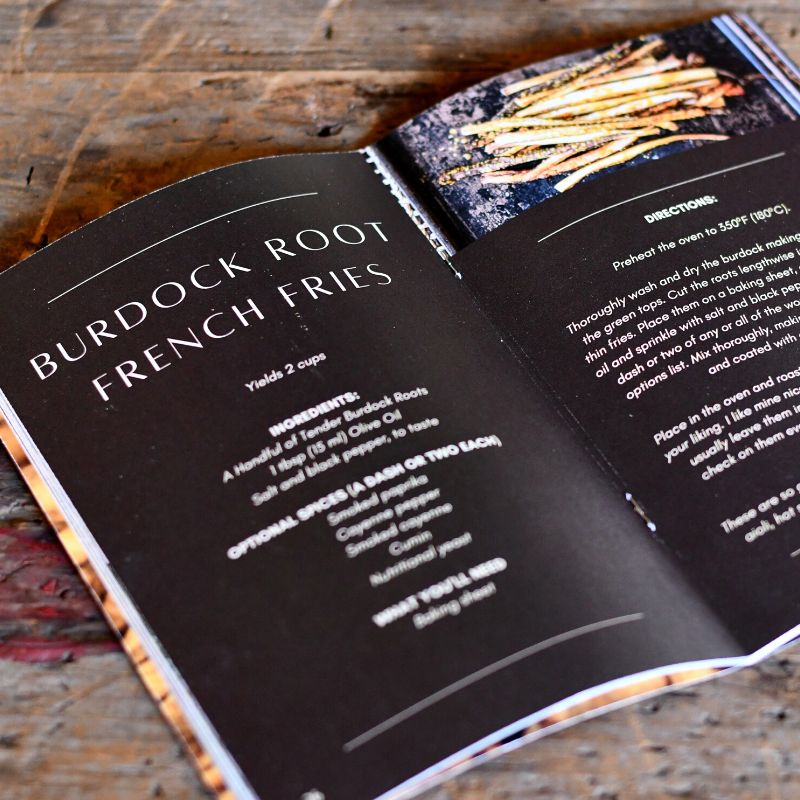 BURDOCK ROOT
FRENCH FRIES
Yields 2 cups
INGREDIENTS:
A Handful of Tender Burdock Roots
1 tbsp (15 ml) Olive Oil
Salt and black pepper, to taste
OPTIONAL SPICES (A DASH OR TWO EACH)
Smoked paprika
Cayenne pepper
Smoked cayenne
Cumin
Nutritional yeast
WHAT YOU'LL NEED
Baking sheet
DIRECTIONS:
Preheat the oven to 350°F (180°C).
Thoroughly wash and dry the burdock making
the green tops. Cut the roots lengthwise
thin fries. Place them on a baking sheet,
oil and sprinkle with salt and black
dash or two of any or all of the
options list. Mix thoroughly,
and coated with
Place in the oven and roast
your liking. I like mine
usually leave them
check on them
These are so
aioli, hot